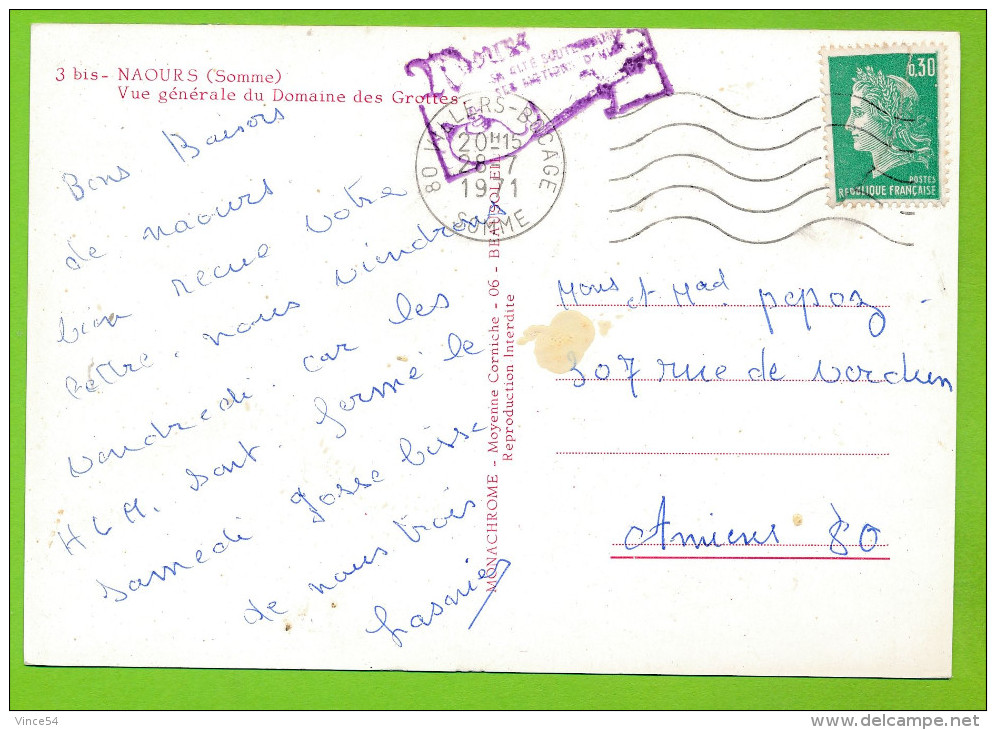 3 bis- NAOURS (Somme)
Vue générale du Domaine des Grottes
Bons Baisors
de naours
bien recue votre
lettre. nous viendrons
vendredi car les
H L M. sont. fermé le
samedi grosse bisse
de nous trois
80 VILLERS-BOCAGE
20H15
28-7
1971
SOMME
0,30
POSTES
REPUBLIQUE FRANÇAISE
MONACHROME - Moyenne Corniche - 06 - BEAUSOLEIL
Reproduction Interdite
Mons et Mad pepoz
307 rue de verdun
Amiens 80
Vince54
www.delcampe.net